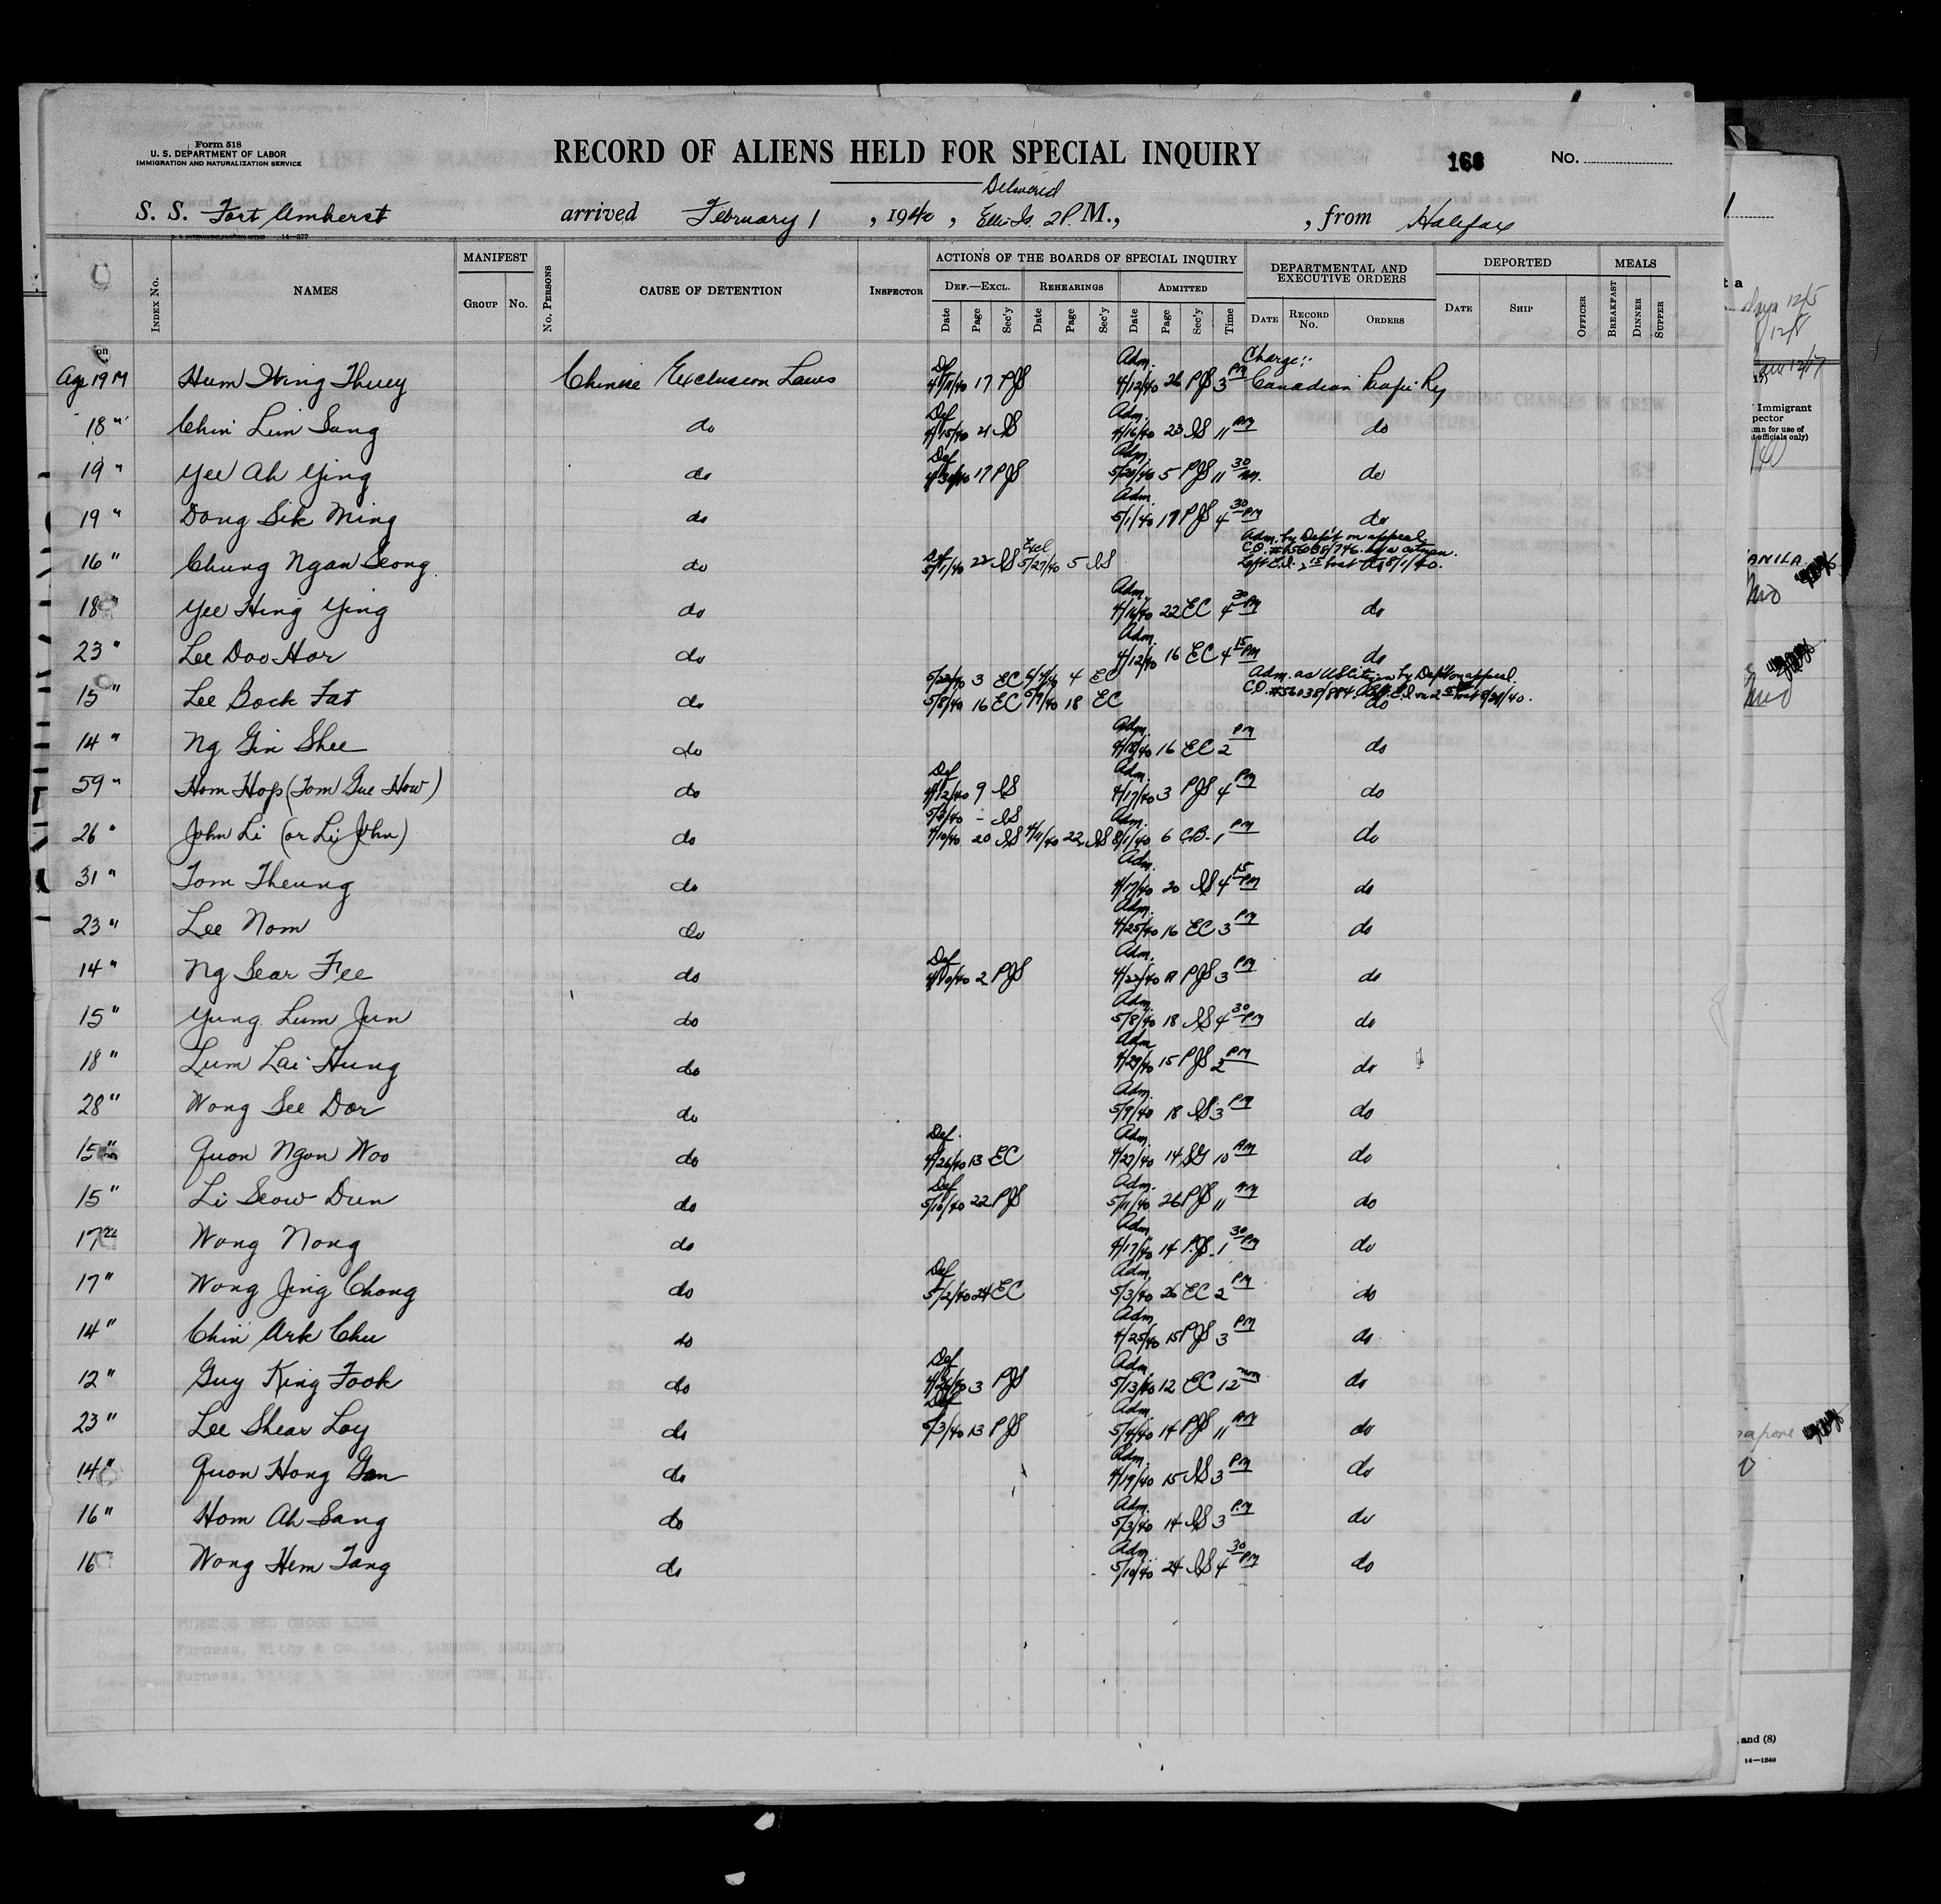 Form 518
U. S. DEPARTMENT OF LABOR
IMMIGRATION AND NATURALIZATION SERVICE
RECORD OF ALIENS HELD FOR SPECIAL INQUIRY
168 No.
Delivered
S. S. Fort Amherst arrived February 1, 1940, Ellis Is. 2 P. M., , from Halifax
14-277
INDEX No. NAMES MANIFEST GROUP No. No. PERSONS CAUSE OF DETENTION INSPECTOR ACTIONS OF THE BOARDS OF SPECIAL INQUIRY DEF.—EXCL. REHEARINGS ADMITTED DEPARTMENTAL AND EXECUTIVE ORDERS DEPORTED MEALS
Date Page Sec'y Date Page Sec'y Date Page Sec'y Time DATE RECORD No. ORDERS DATE SHIP OFFICER BREAKFAST DINNER SUPPER
Age 19 M Hum Wing Thuey Chinese Exclusion Laws Def 4/11/40 17 PJS Adm. 4/12/40 26 PJS 3 PM Charge: Canadian Pacific Ry
18 " Chin Lim Sang do Def 4/15/40 21 Adm. 4/16/40 23 11 AM do
19 " Yee Ah Ying do Def 4/30/40 17 PJS Adm. 5/20/40 5 PJS 11 30 do
19 " Dong Sik Ming do Adm. 5/1/40 17 PJS 4 30 PM do
16 " Chung Ngan Seong do Def 5/1/40 22 Excl 5/27/40 5 Adm. by Dep't on appeal C.O. #56038/746. as a citizen. Left E.I. 2 15 boat 8/1/40.
18 " Yee Hing Ying do Adm. 4/16/40 22 EC 4 30 PM do
23 " Lee Doo Hor do Adm. 4/12/40 16 EC 4 15 PM do
15 " Lee Bock Fat do 5/22/40 3 EC 4 EC 5/8/40 16 EC 5/9/40 18 EC Adm. as US Citizen by Dep't on appeal. C.O. #56038/884. do
14 " Ng Gin Shee do Adm. 4/18/40 16 EC 2 PM do
59 " Hom Hop (Tom Gue How) do Def 4/12/40 9 Adm. 4/17/40 3 PJS 4 PM do
26 " John Li (or Li John) do 4/10/40 20 4/11/40 22 Adm. 8/1/40 6 CB 1 PM do
31 " Tom Theung do Adm. 4/17/40 20 4 15 PM do
23 " Lee Nom do Adm. 4/25/40 16 EC 3 PM do
14 " Ng Sear Fee do Def 4/19/40 2 PJS Adm. 4/22/40 PJS 3 PM do
15 " Yung Lum Jun do Adm. 5/8/40 18 4 30 PM do
18 " Lum Lai Hung do Adm 4/29/40 15 PJS 2 PM do
28 " Wong See Dor do Adm. 5/9/40 18 3 PM do
15 " Quon Ngon Woo do Def. 4/26/40 13 EC Adm. 4/27/40 14 SG 10 AM do
15 " Li Seow Dun do Def 5/10/40 22 PJS Adm. 5/11/40 26 PJS 11 AM do
17 Wong Nong do Adm 4/17/40 14 PJS 1 30 PM do
17 " Wong Jing Chong do Def 5/2/40 24 EC Adm. 5/3/40 26 EC 2 PM do
14 " Chin Ark Chu do Adm. 4/25/40 15 PJS 3 PM do
12 " Guy King Fook do Def 3 PJS Adm. 5/13/40 12 EC 12 noon do
23 " Lee Shear Loy do Def 5/3/40 13 PJS Adm. 5/4/40 14 PJS 11 AM do
14 " Quon Hong Gan do Adm. 4/19/40 15 3 PM do
16 " Hom Ah Sang do Adm. 5/3/40 14 3 PM do
16 Wong Hem Tang do Adm. 5/10/40 24 4 30 PM do
Immigrant
officials only)
and (8)
14—1240